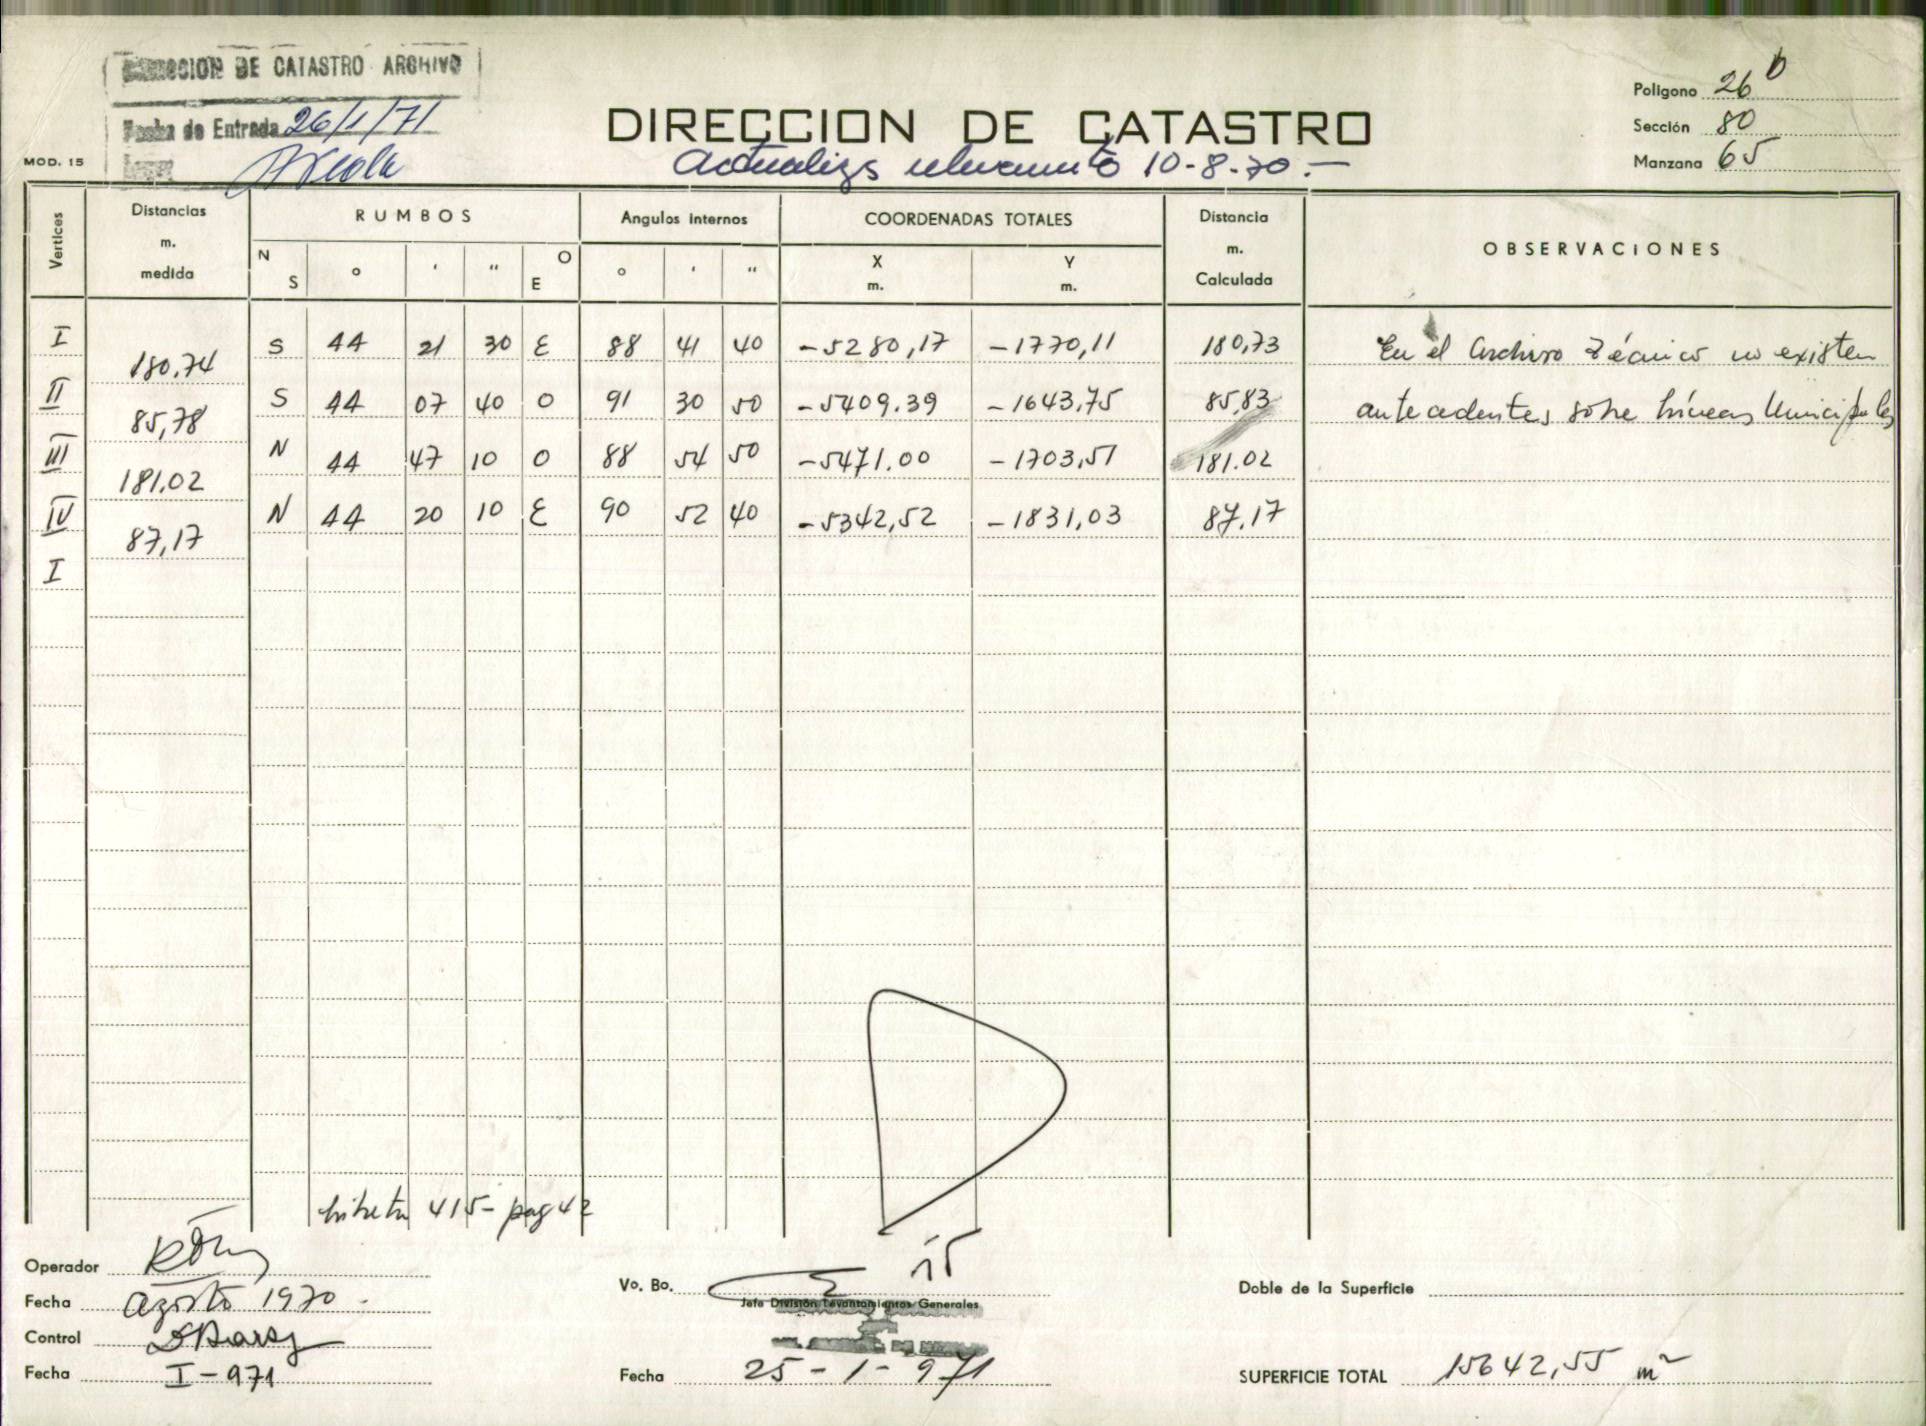 DIRECCION DE CATASTRO ARCHIVO
Fecha de Entrada 26/1/71
MOD. 15
DIRECCION DE CATASTRO
Actualiza relevamiento 10-8-70.-
Poligono 26 b
Sección 80
Manzana 65
Vertices
Distancias
m.
medida
RUMBOS
N
S
° ' "
O
E
Angulos internos
° ' "
COORDENADAS TOTALES
X
m.
Y
m.
Distancia
m.
Calculada
OBSERVACIONES
I S 44 21 30 E 88 41 40 -5280,17 -1770,11 180,73 En el Archivo Técnico no existen
180.74
II S 44 07 40 O 91 30 50 -5409.39 -1643,75 85,83 antecedentes sobre líneas Municipales
85,78
III N 44 47 10 O 88 54 50 -5471.00 -1703,51 181.02
181.02
IV N 44 20 10 E 90 52 40 -5342,52 -1831,03 87,17
87,17
I
libreta 415- pag 42
Operador
Fecha agosto 1970.
Control
Fecha I-971
Vo. Bo.
Jefe División Levantamientos Generales
Fecha 25-1-971
Doble de la Superficie
SUPERFICIE TOTAL 15642,55 m²